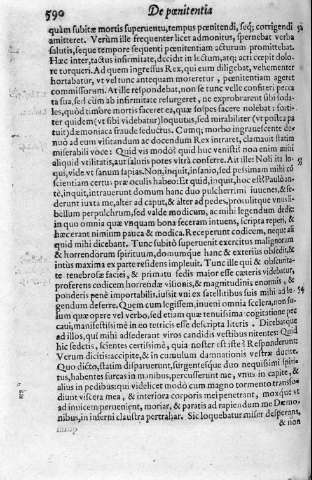 590 De pœnitentia
quàm subitæ mortis superuentu, tempus pœnitendi, seq; corrigendi
amitteret. Verùm ille frequenter licet admonitus, spernebat verba
salutis, seque tempore sequenti pœnitentiam acturum promittebat.
Hæc inter, tactus infirmitate, decidit in lectum, atq; acri cœpit dolo-
re torqueri. Ad quem ingressus Rex, qui eum diligebat, vehementer
hortabatur, vt vel tunc antequam moreretur, pœnitentiam ageret
commissorum. At ille respondebat, non se tunc velle confiteri pecca
ta sua, sed cùm ab infirmitate resurgeret, ne exprobrarent sibi soda-
les, quòd timore mortis faceret ea, quæ sospes facere nolebat: forti-
ter quidem (vt sibi videbatur) loquutus, sed mirabiliter (vt postea pa
tuit) dæmoniaca fraude seductus. Cumq; morbo ingrauescente de-
nuò ad eum visitandum ac docendum Rex intraret, clamauit statim
miserabili voce: Quid vis modò? quid huc venisti? non enim mihi
aliquid vtilitatis, aut salutis potes vltrà conferre. At ille: Noli ita lo-
qui, vide vt sanum sapias. Non, inquit, insanio, sed pessimam mihi cō
scientiam certus præ oculis habeo. Et quid, inquit, hoc est? Paulò an-
tè, inquit, intrauerunt domum hanc duo pulcherrimi iuuenes, & se-
derunt iuxta me, alter ad caput, & alter ad pedes, protulitque vnus li-
bellum perpulchrum, sed valde modicum, ac mihi legendum dedit:
in quo omnia quæ vnquam bona feceram intuens, scripta reperi, &
hæc erant nimium pauca & modica. Receperunt codicem, neque ali
quid mihi dicebant. Tunc subitò superuenit exercitus malignorum
& horrendorum spirituum, domumque hanc & exteriùs obsedit, &
intùs maxima ex parte residens impleuit. Tunc ille qui & obscurita-
te tenebrosæ faciei, & primatu sedis maior esse cæteris videbatur,
proferens codicem horrendæ visionis, & magnitudinis enormis, &
ponderis penè importabilis, iussit vni ex satellitibus suis mihi ad le-
gendum deferre. Quem cum legissem, inueni omnia scelera, non so-
lum quæ opere vel verbo, sed etiam quæ tenuissima cogitatione pec
caui, manifestissimè in eo tetricis esse descripta literis. Dicebatque
ad illos, qui mihi adsederant viros candidis vestibus nitentes: Quid
hic sedetis, scientes certissimè, quia noster est iste? Responderunt:
Verum dicitis: accipite, & in cumulum damnationis vestræ ducite.
Quo dicto, statim disparuerunt, surgentesque duo nequissimi spiri-
tus, habentes furcas in manibus, percusserunt me, vnus in capite, &
alius in pedibus: qui videlicet modò cum magno tormento transfo-
diunt viscera mea, & interiora corporis mei penetrant, moxque vt
ad inuicem peruenient, moriar, & paratis ad rapiendum me Dæmo-
nibus, in inferni claustra pertrahar. Sic loquebatur miser desperans,
& non